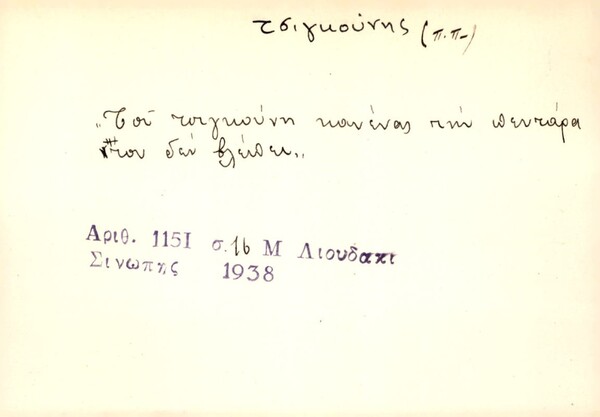 τσιγκούνης (π.π.)
„Τοῦ τσιγκούνη κανένας τὴν πεντάρα
του δὲν βλέπει„
Αριθ. 1151 σ. 16 Μ Λιουδακι
Σινωπης 1938